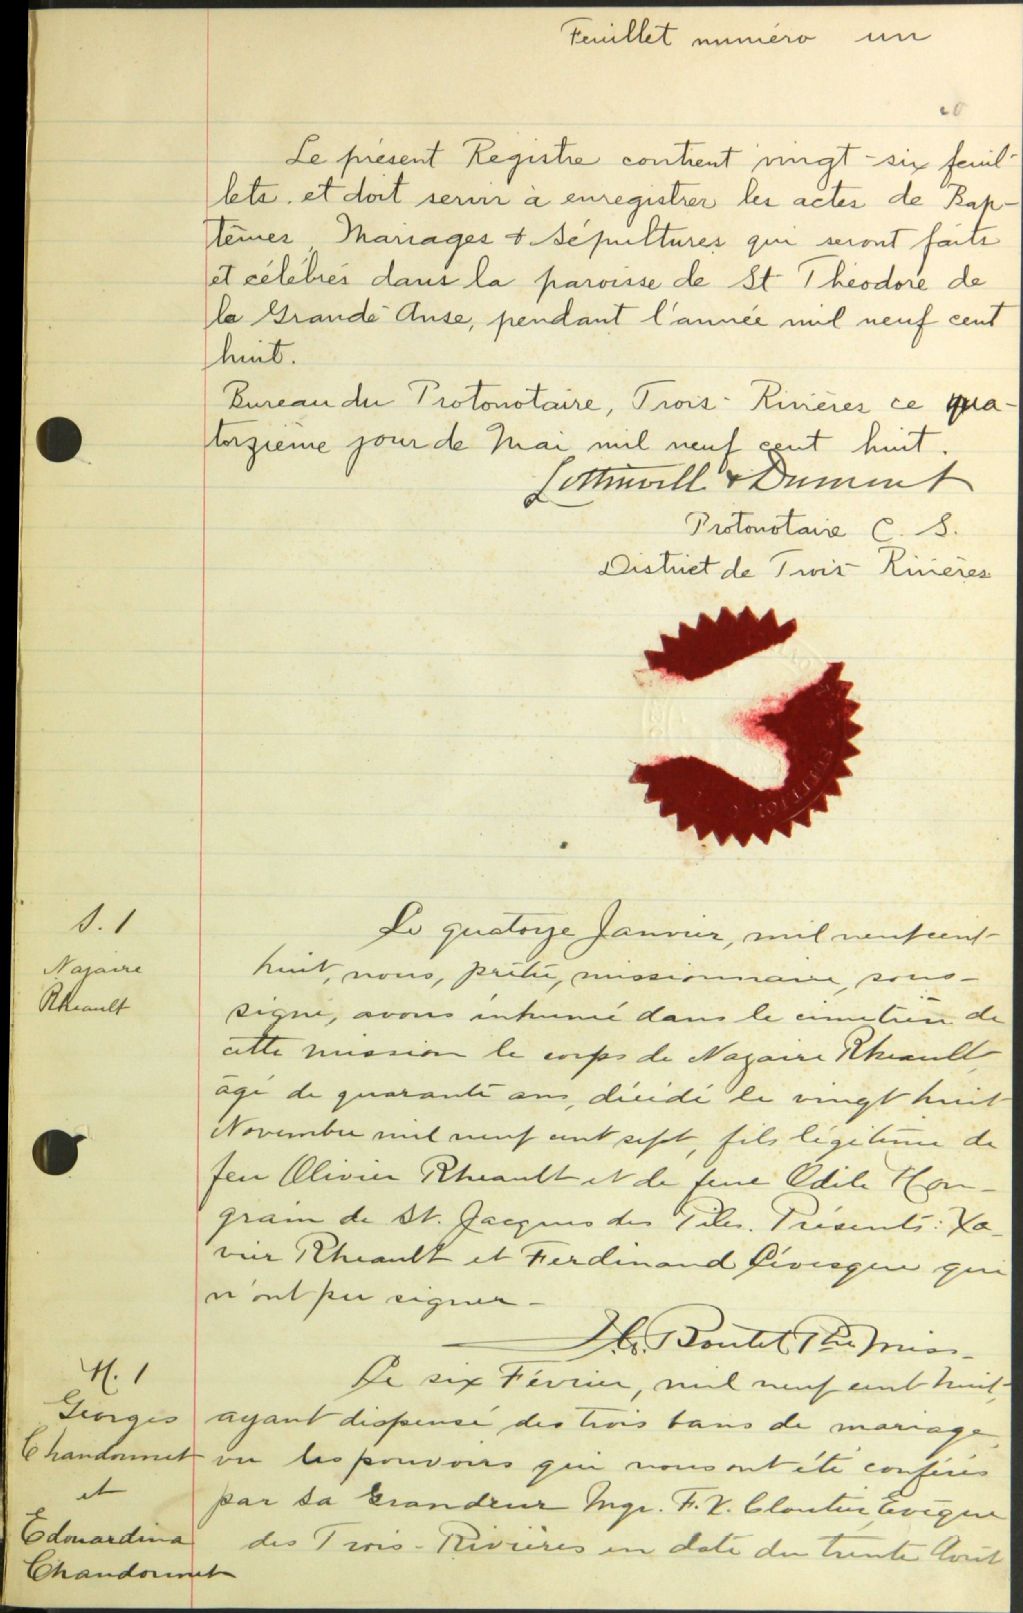 Feuillet numéro un
Le présent Registre contient vingt-six feuil-
lets et doit servir à enregistrer les actes de Bap-
têmes, Mariages & Sépultures qui seront faits
et célébrés dans la paroisse de St Théodore de
la Grande Anse, pendant l'année mil neuf cent
huit.
Bureau du Protonotaire, Trois-Rivières ce qua-
torzième jour de Mai mil neuf cent huit.
Lottinvill & Dumont
Protonotaire C. S.
District de Trois-Rivières
S. 1
Nazaire
Rheault
Le quatorze Janvier, mil neuf cent
huit, nous, prêtre, missionnaire, sous-
signé, avons inhumé dans le cimetière de
cette mission le corps de Nazaire Rheault,
âgé de quarante ans, décédé le vingt huit
Novembre mil neuf cent sept, fils légitime de
feu Olivier Rheault et de feue Odile Mon-
grain de St. Jacques des Piles. Présents: Xa-
vier Rheault et Ferdinand Lévesque qui
n'ont pu signer-
Boutet Ptre Miss.
M. 1
Georges
Chandonnet
et
Edouardina
Chandonnet
Le six Février, mil neuf cent huit,
ayant dispensé des trois bans de mariage,
vu les pouvoirs qui nous ont été conférés
par Sa Grandeur Mgr. F. X. Cloutier, Evêque
des Trois-Rivières en date du trente Août